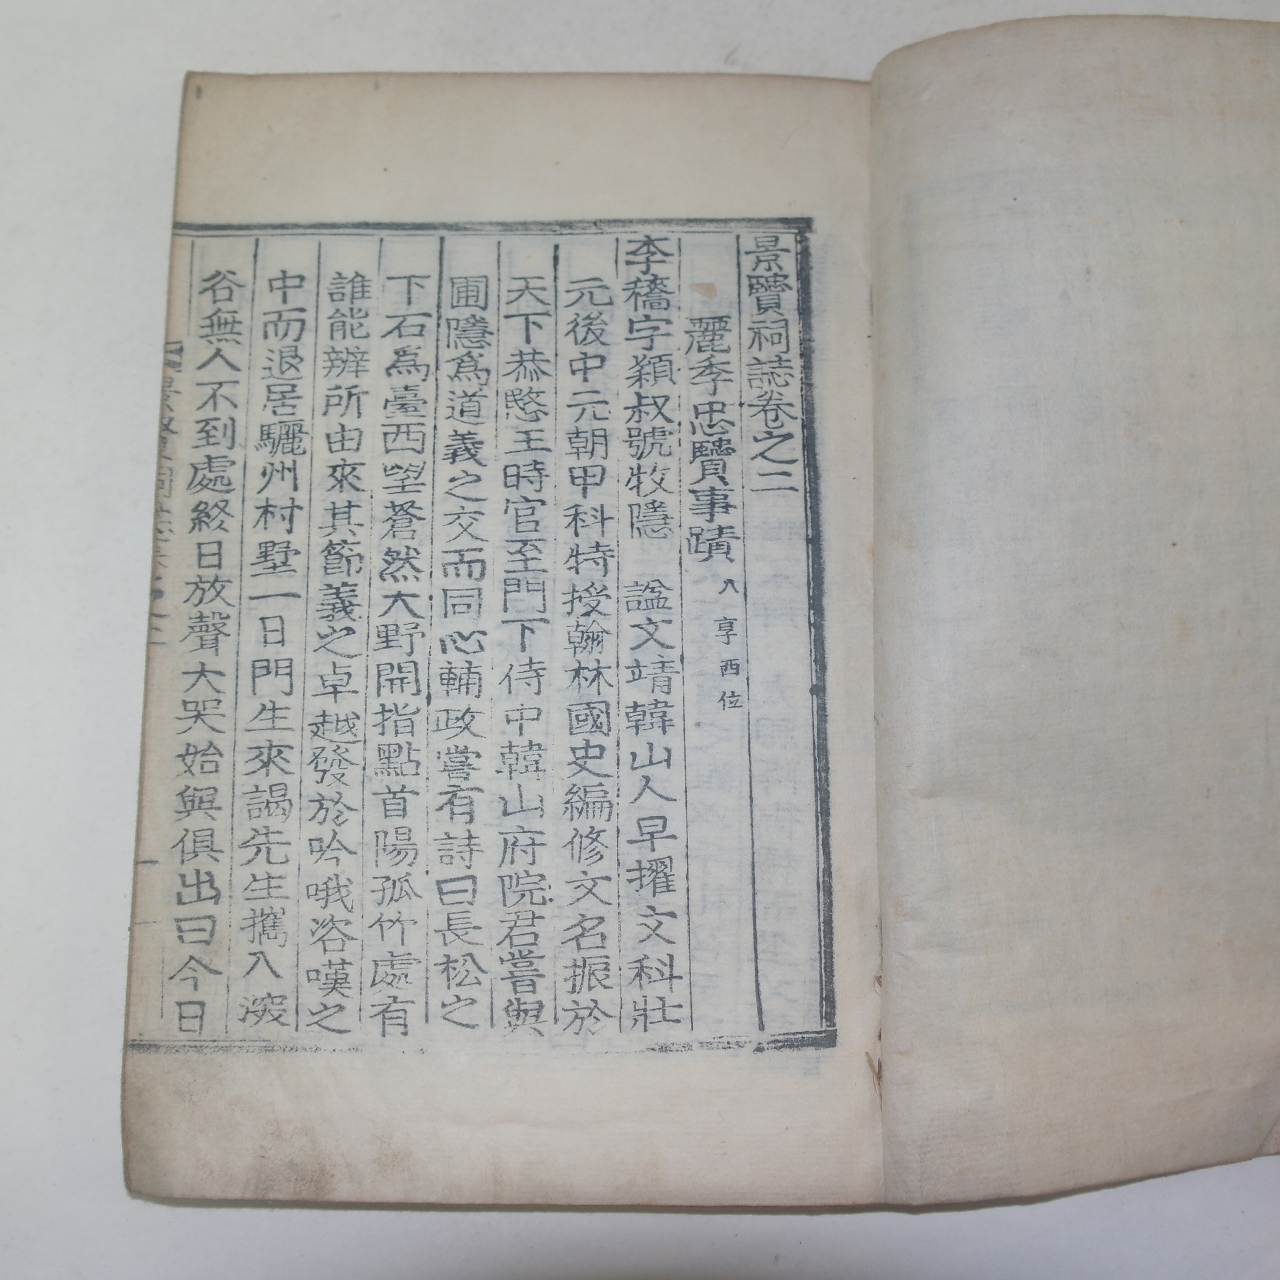 景賢祠誌卷之二
麗季忠賢事蹟 八享西位
李穡字穎叔號牧隱 諡文靖韓山人早擢文科壯
元後中元朝甲科特授翰林國史編修文名振於
天下恭愍王時官至門下侍中韓山府院君嘗與
圃隱爲道義之交而同心輔政嘗有詩曰長松之
下石爲臺西望蒼然大野開指點首陽孤竹處有
誰能辨所由來其節義之卓越發於吟哦咨嘆之
中而退居驪州村墅一日門生來謁先生攜入深
谷無人不到處終日放聲大哭始與俱出曰今日
景賢祠誌卷之二